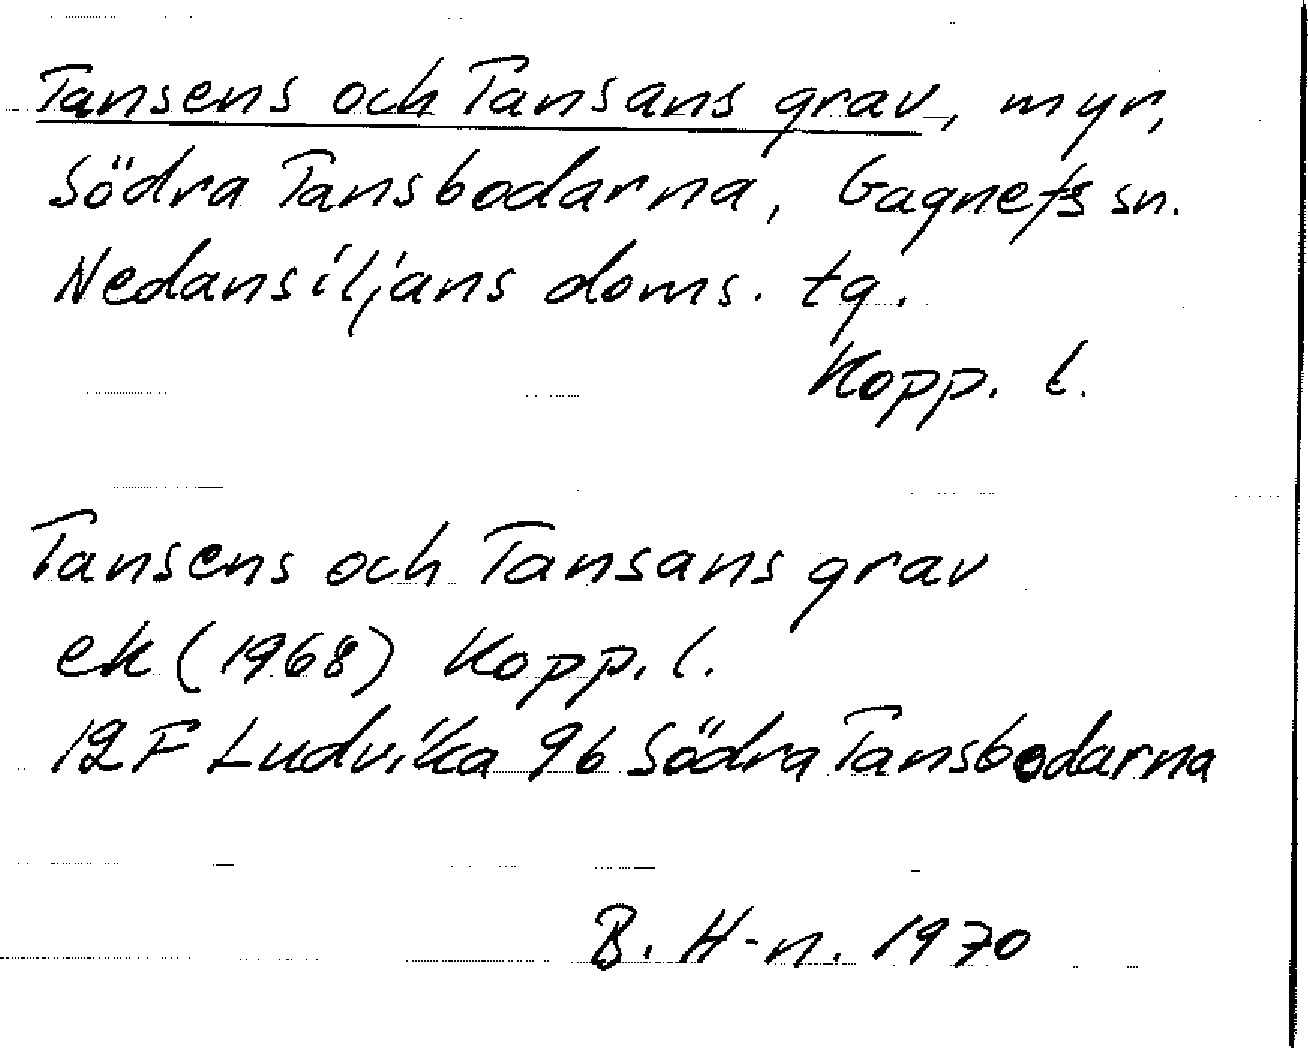 Tansens och Tansans grav, myr,
Södra Tansbodarna, Gagnefs sn.
Nedansiljans doms. tg.
Kopp. l.
Tansens och Tansans grav
ek (1968) Kopp. l.
12F Ludvika 9b Södra Tansbodarna
B. H-n. 1970